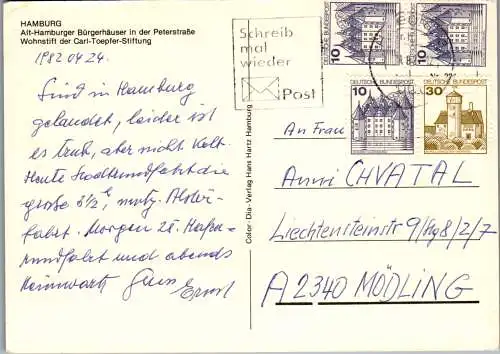 HAMBURG
Alt-Hamburger Bürgerhäuser in der Peterstraße
Wohnstift der Carl-Toepfer-Stiftung
1982 04 24.
Sind in Hamburg
gelandet, leider ist
es trüb, aber nicht kalt.
Heute Stadtrundfahrt die
große 3½
fahrt. Morgen 2h Hafen
rundfahrt und abends
heimwärts Gruss
Ernst
Color-Dia-Verlag Hans Hartz Hamburg
Schreib
mal
wieder
Post
10
10
DEUTSCHE BUNDESPOST
10
DEUTSCHE BUNDESPOST
30
An Frau
Anni CHVATAL
Liechtensteinstr 9/Kg8/2/7
A 2340 MÖDLING